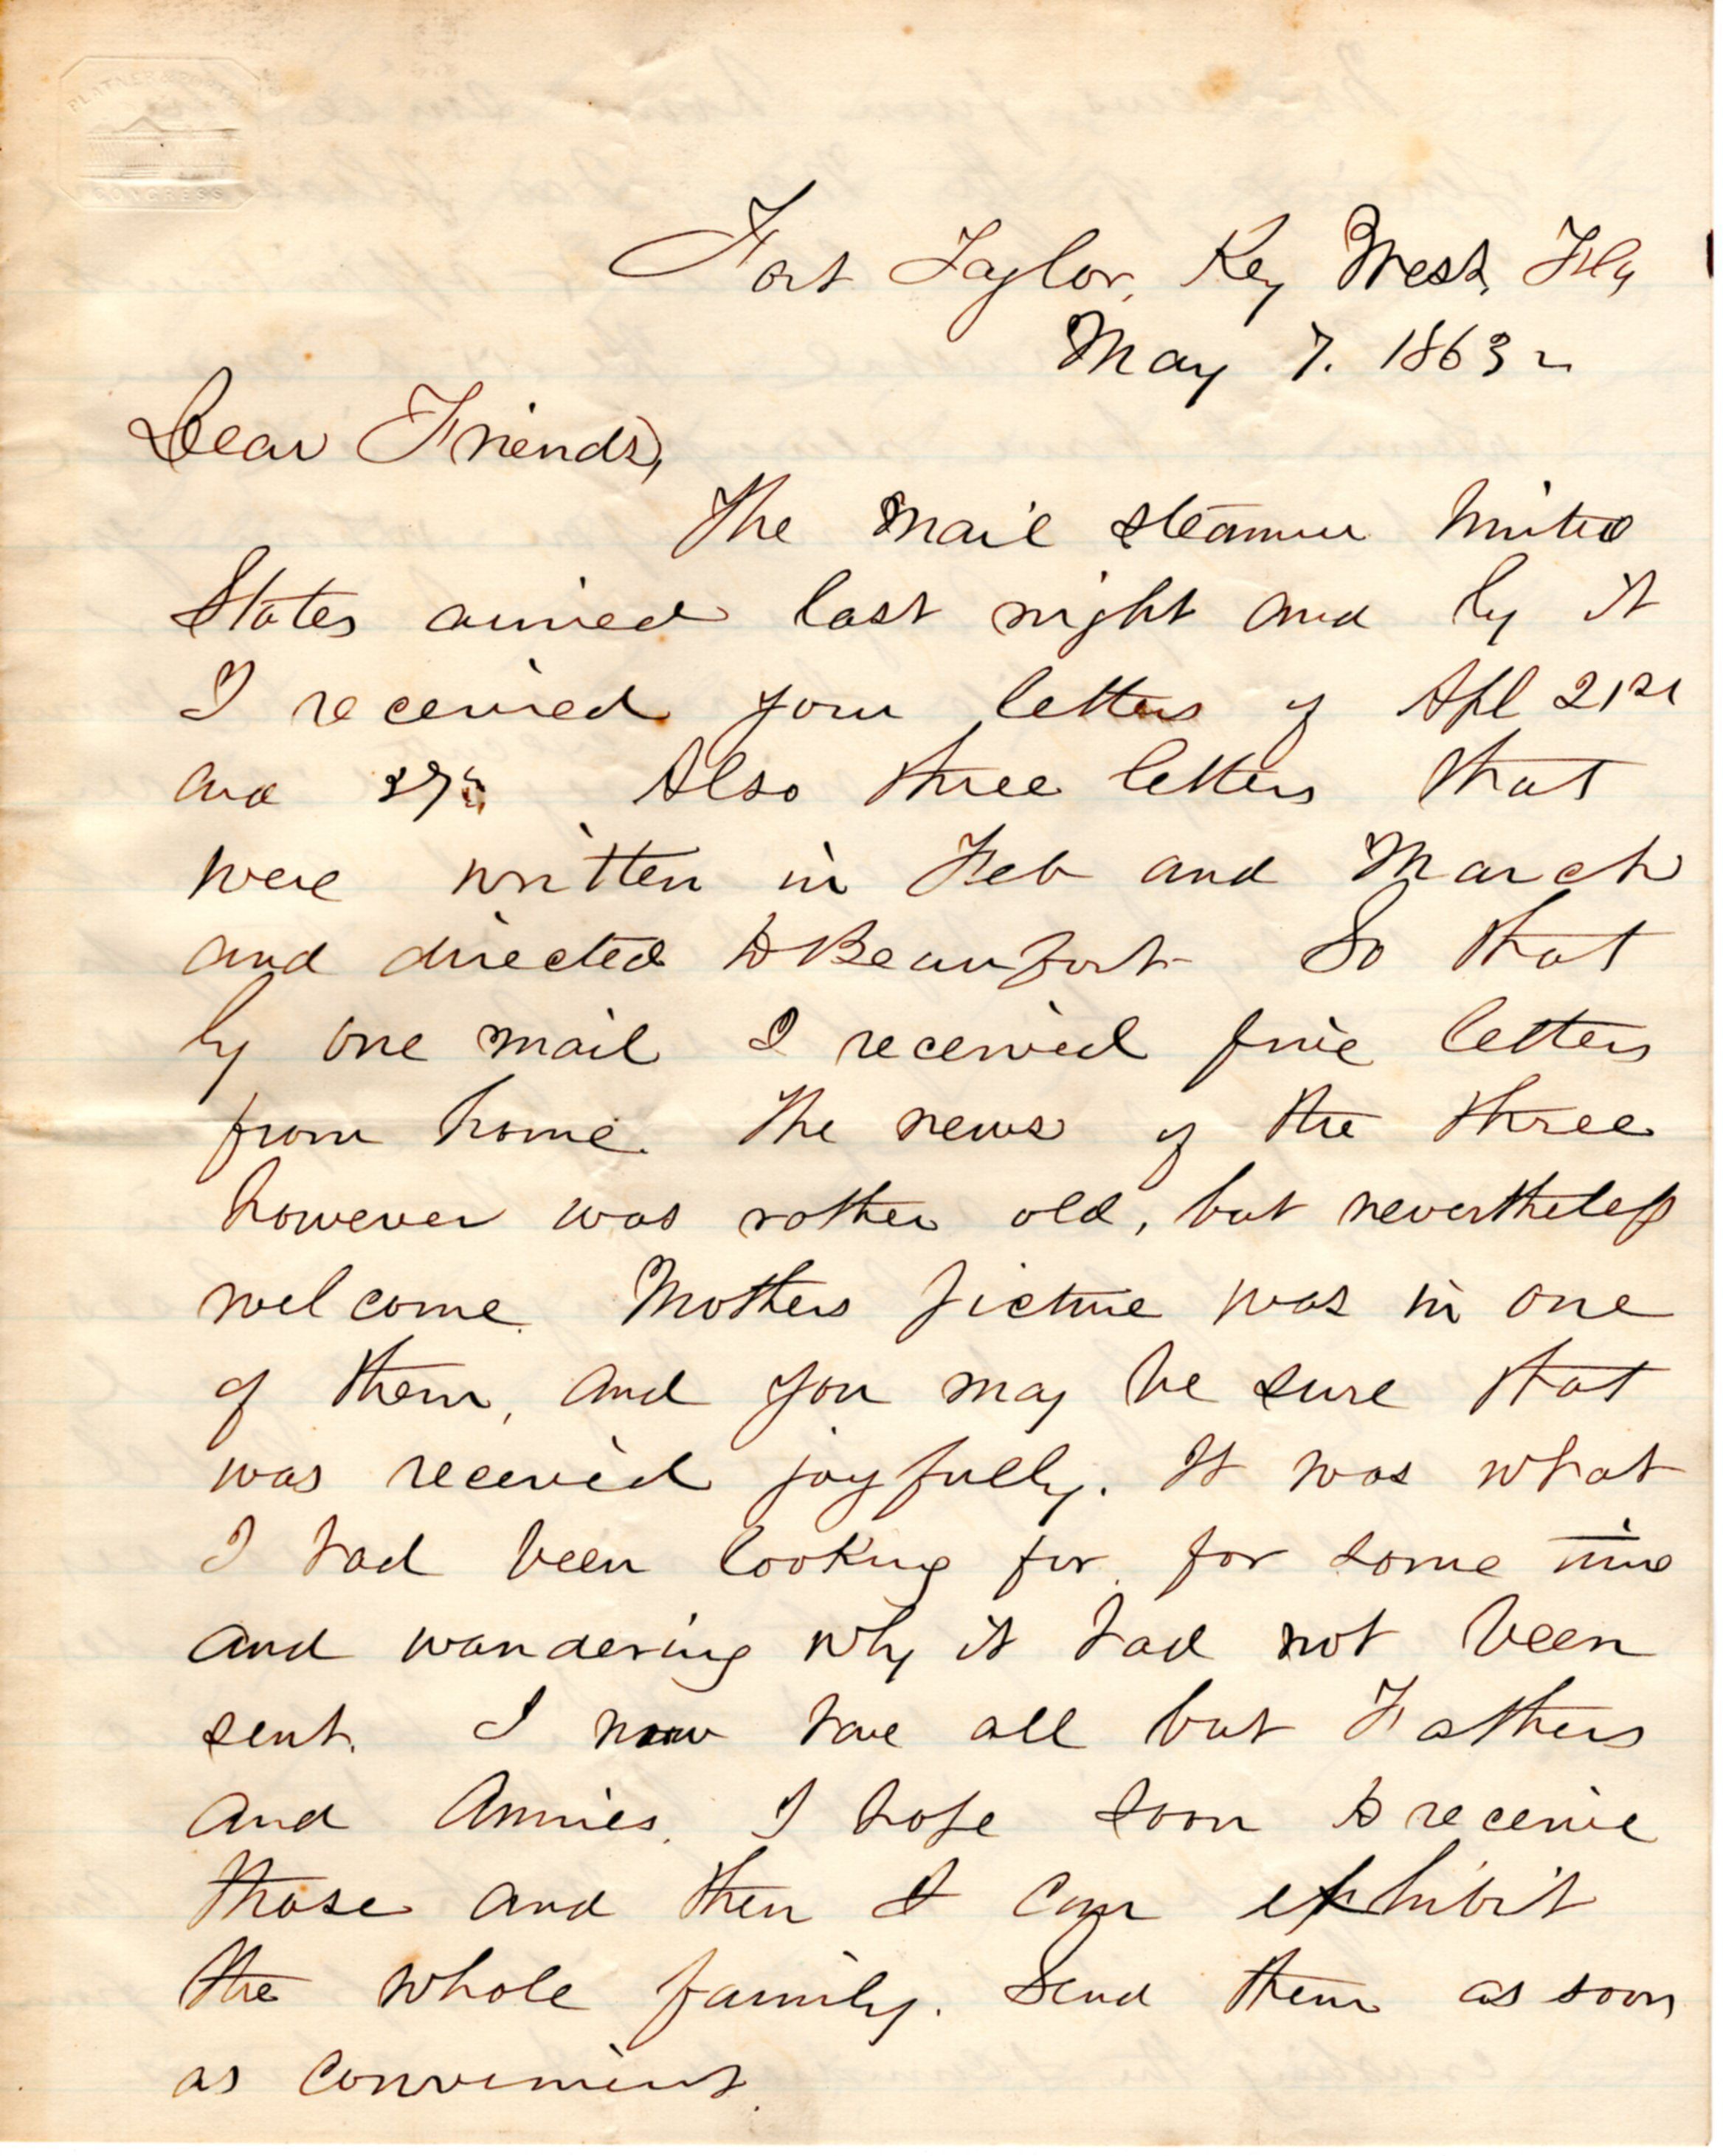 PLATNER & PORTER
CONGRESS
Fort Taylor, Key West, Fla,
May 7. 1863
Dear Friends,
The mail steamer United
States arrived last night and by it
I received your letters of Apl 21st
and 27th Also three letters that
were written in Feb and March
and directed to Beaufort So that
by one mail I received five letters
from home. The news of the three
however was rather old, but nevertheless
welcome. Mothers picture was in one
of them, and you may be sure that
was received joyfully. It was what
I had been looking for, for some time
and wandering why it had not been
sent. I now have all but Fathers
and Annies. I hope soon to receive
those and then I can exhibit
the whole family. Send them as soon
as convenient.